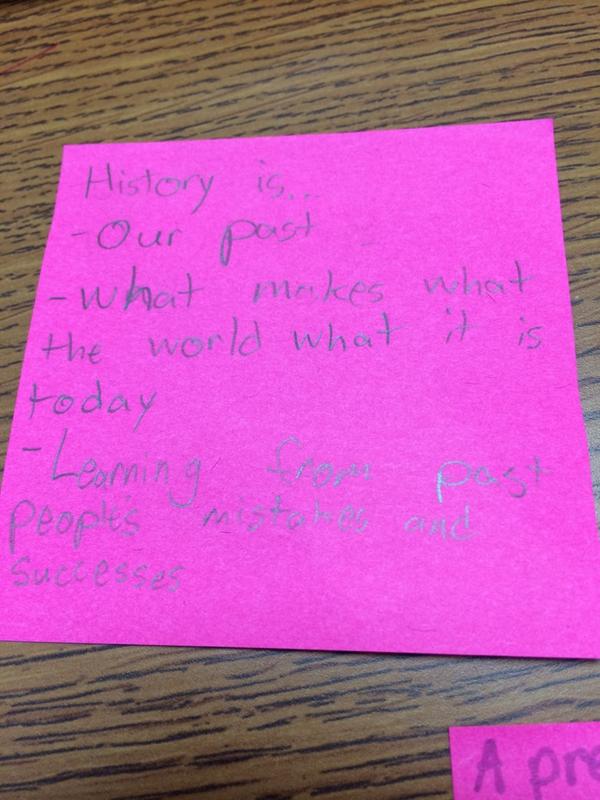 History is...
- Our past
- What makes what
the world what it is
today
- Learning from past
people's mistakes and
successes
A pre